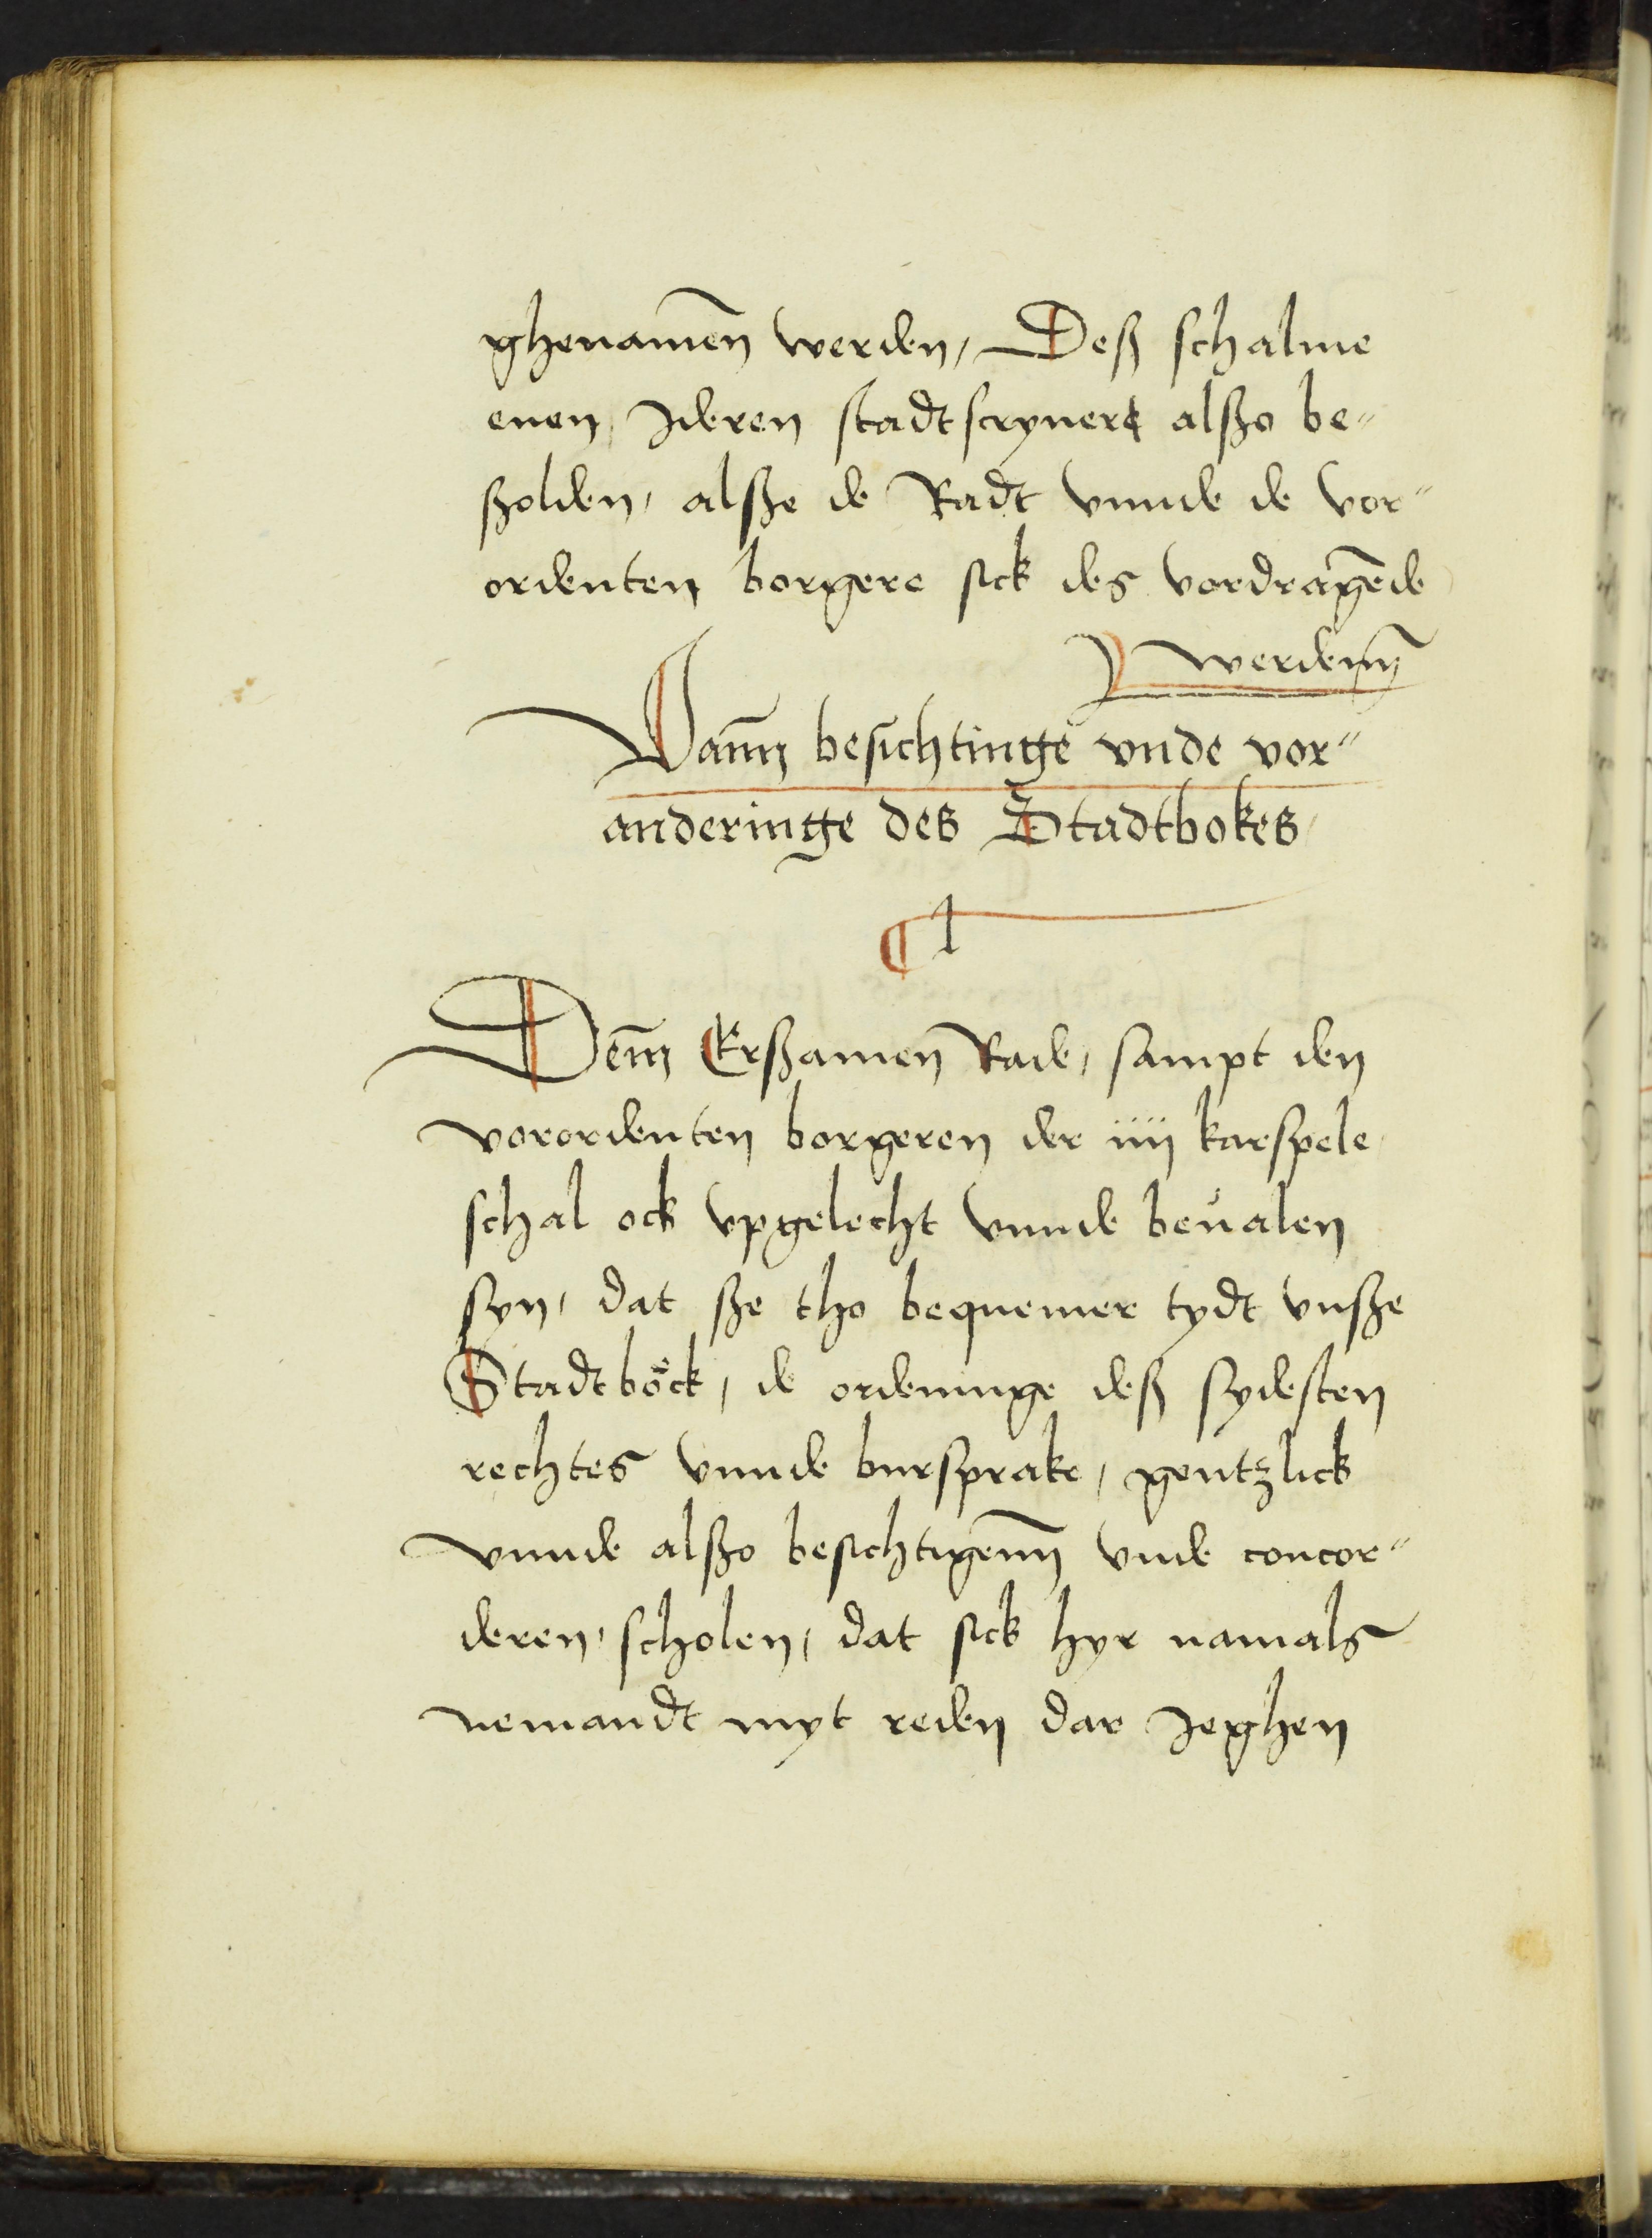 ghenamen̄ werden, Deß schalme
enen, Jderen stadtscryuere alßo be„
ßolden, alße de Radt vnnde de vor„
ordenten borgere sick des vordragēde
werdenn̄
Vann̄ besichtinge vnde vor„
anderinge des Stadtbokes,
¶ 1
Dem̄ Erßamen Rade, sampt den
vorordenten borgeren der iiij karspele,
schal ock vpgelecht vnnde beůalen
syn, dat ße tho bequemer tydt vnße
Stadtböck, de ordeninge deß sydesten
rechtes vnnde bursprake, gentzlick
vnnde alßo besichtigenn̄ vnde concor„
deren, scholen, dat sick hyr namals
nemandt myt reden dar Jeghen